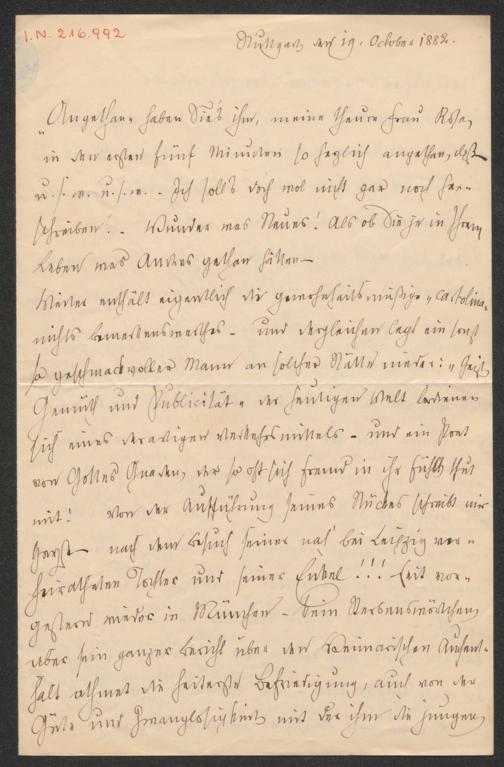 I.N. 216.992
Stuttgart, den 19. October 1882.
„Angethan“ haben Sie's ihm, meine theure Frau Rosa,
in den ersten fünf Minuten so angethan, daß
u. s. w. u. s. w. – Ich soll's doch wol nicht gar noch her-
schreiben! – Wunder was Neues! Als ob Sie je in Ihrem
Leben was Anders gethan hätten –
Weiter enthält eigentlich die gewohnheitsmäßige „cartolina“
nichts bemerkenswerthes – und dergleichen legt ein sonst
so geschmackvoller Mann an solcher Stätte nieder: „Geist
Gemüth und Publicität“ der heutigen Welt bedienen
sich eines derartigen Verkehrsmittels – und ein Poet
von Gottes Gnaden, der so oft sich fremd in ihr fühlt thut
mit! Von der Aufführung seines Stückes schreibt mir
Heyse nach dem Besuch seiner nah' bei Leipzig ver-
heiratheten Tochter und seiner Enkel!!! Seit vor-
gestern wieder in München – Kein Sterbenswörtchen,
aber sein ganzer Bericht über den Weimarischen Aufent-
halt athmet die heiterste Befriedigung, auch von der
Güte und Zwanglosigkeit mit der ihm die jungen